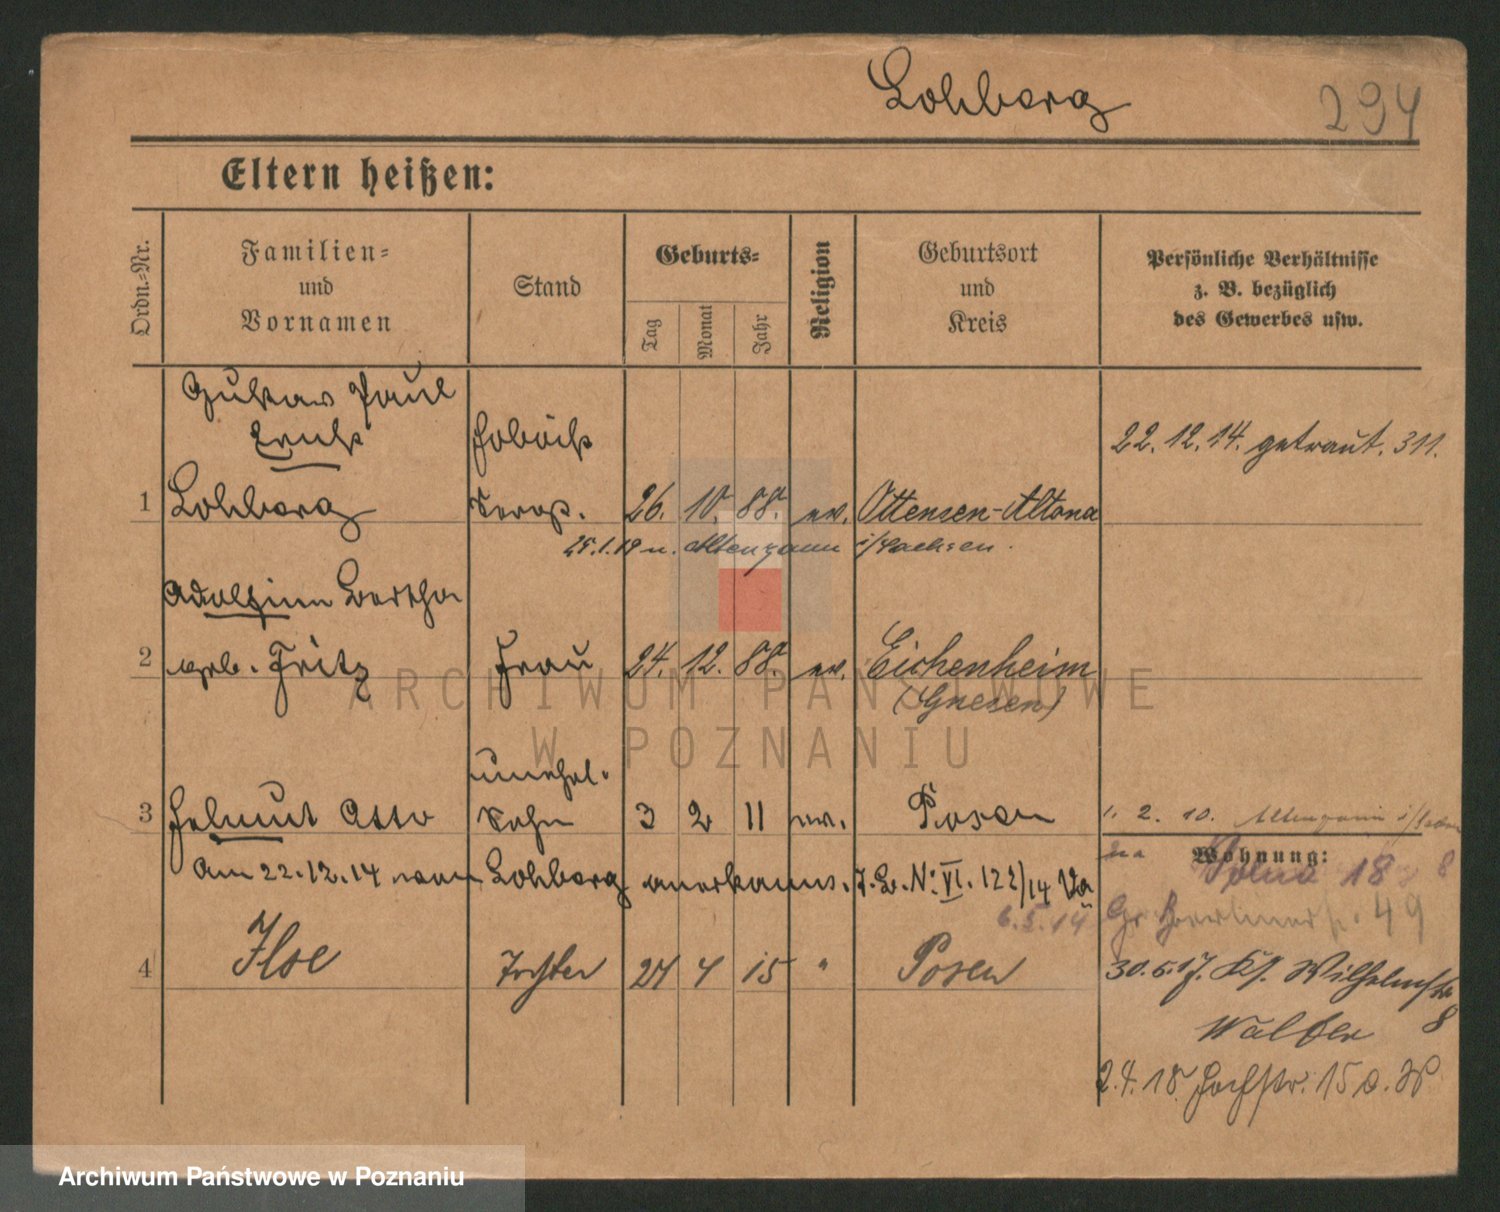 Lohberg
294
Eltern heißen:
Ordn.-Nr.
Familien-
und
Vornamen
Stand
Geburts-
Tag
Monat
Jahr
Religion
Geburtsort
und
Kreis
Persönliche Verhältnisse
z. B. bezüglich
des Gewerbes usw.
Gustav Paul
Ernst
1 Lohberg 26. 10. 88. ev. Ottensen-Altona
22.12.14. getraut. 311.
25.1.19 n. Altengamm i/Sachsen.
Adolfine Bertha
2 geb. Fritz Frau 24. 12. 88. ev. Eichenheim
(Gnesen)
unehel.
3 Helmut Otto Sohn 3 2 11 ev. Posen
1. 2. 10.
Wohnung:
18 8
Am 22.12.14 vom Lohberg anerkannt. J. L. No. VI. 122/14
6.5.14 Gr. Berlinerstr. 49
4 Ilse Tochter 24 4 15 " Posen
30.5.17. Wilhelmstr
8
Walter
2.4.18 Hochstr. 15
ARCHIWUM PAŃSTWOWE
W POZNANIU
Archiwum Państwowe w Poznaniu